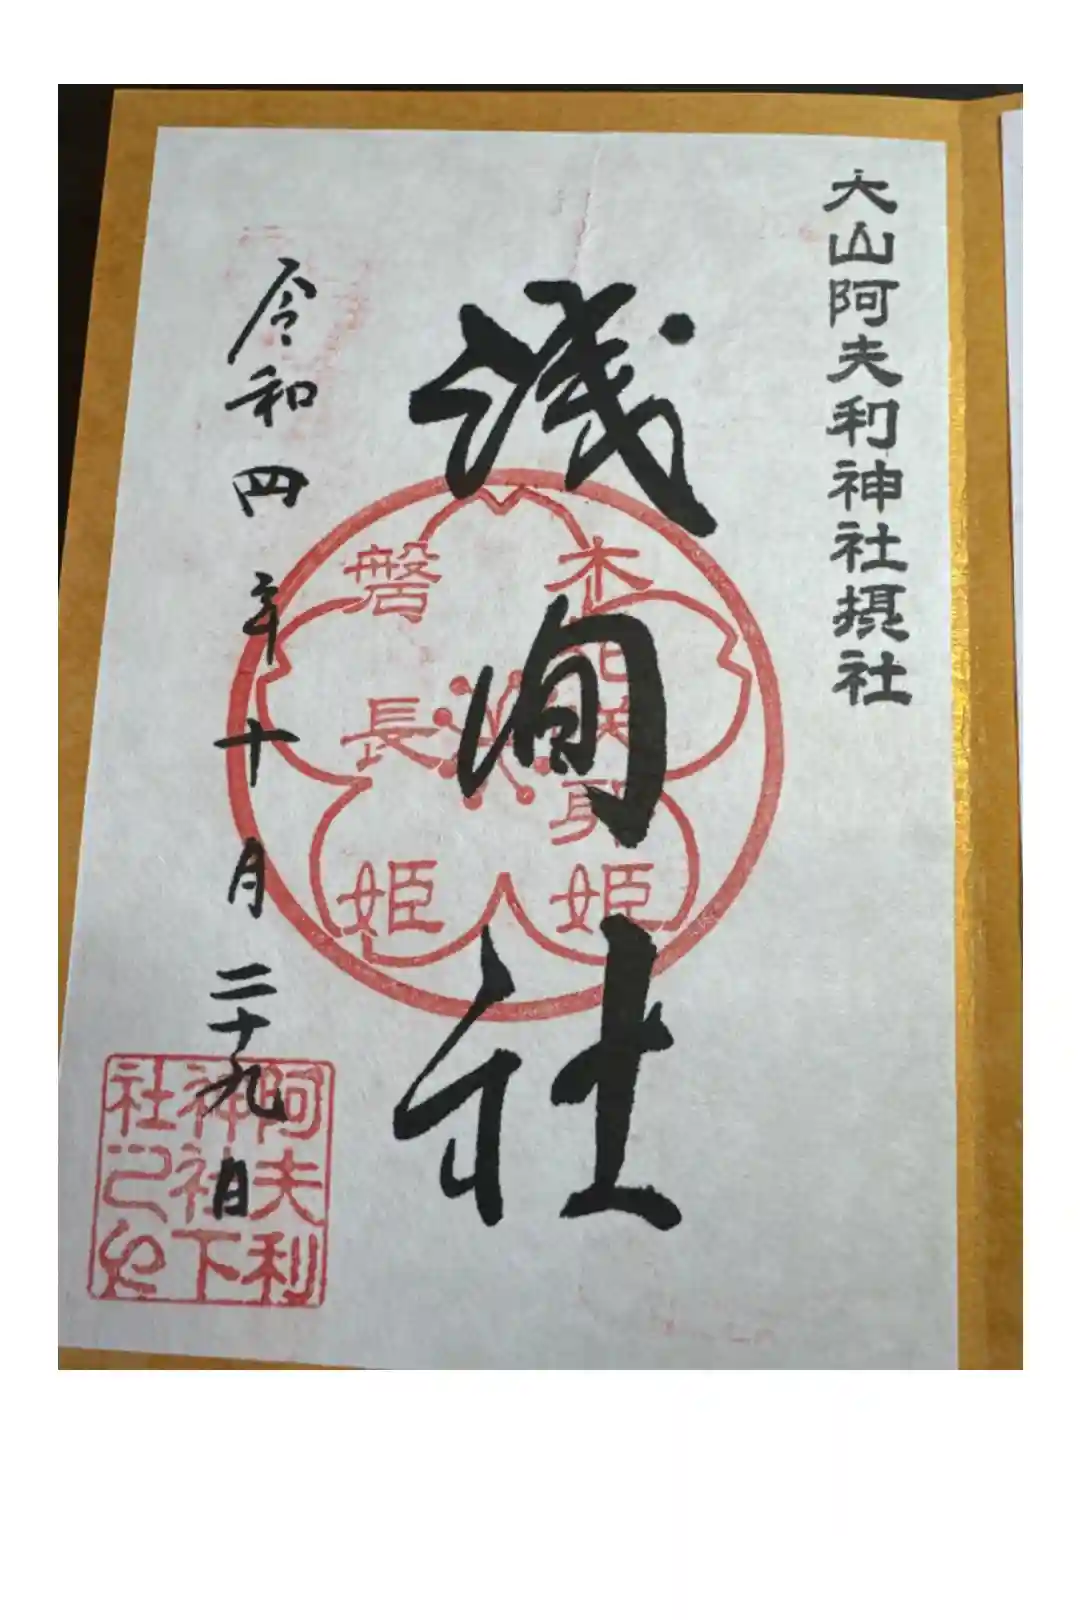 大山阿夫利神社摂社
浅間社
木花咲耶姫
磐長姫
令和四年十月二十九日
阿夫利
神社下
社之印